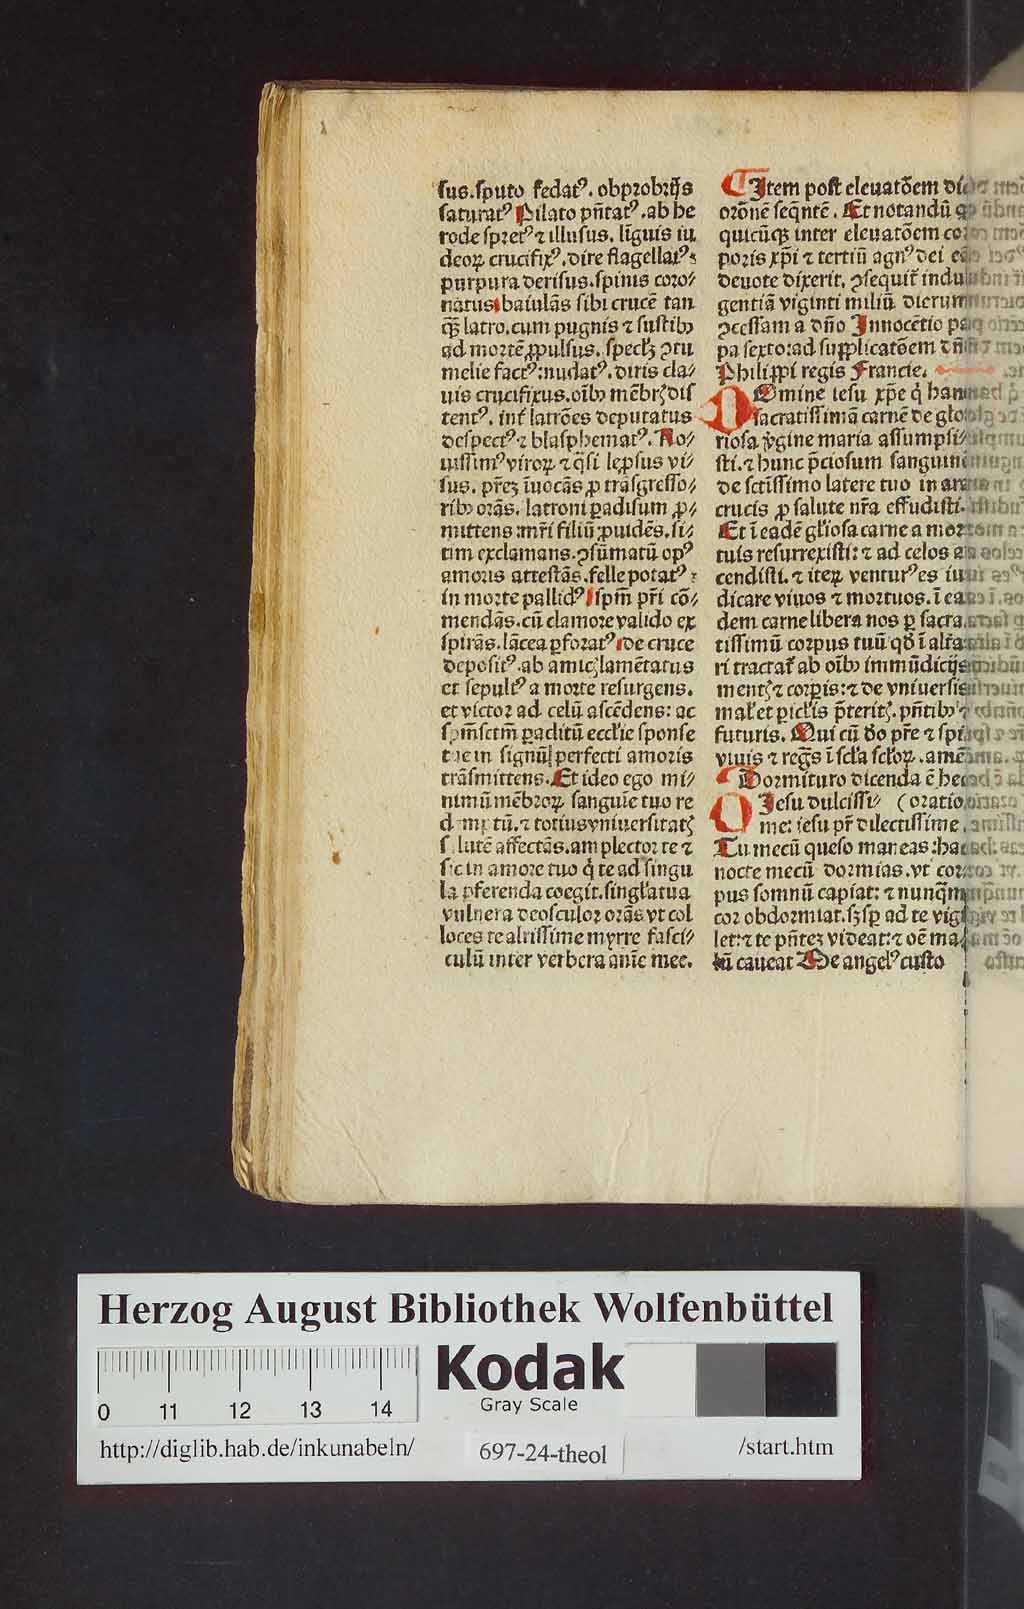 sus. sputo fedatꝰ. obprobrijs
saturatꝰ Pilato pñtatꝰ. ab he
rode spretꝰ ⁊ illusus. lĩguis iu
deoꝝ crucifixꝰ. dire flagellatꝰ:
purpura derisus. spinis coro⸗
natus baiulãs sibi crucẽ tan
qᷓꝫ latro. cum pugnis ⁊ fustibꝫ
ad mortẽ ꝓpulsus. ꝯtu
melie factꝰ: nudatꝰ. diris cla⸗
uis crucifixus. oĩbꝫ mẽbrꝭ dis
tentꝰ. int̃ latrões deputatus
despectꝰ ⁊ blasphematꝰ. No⸗
uissimꝰ viroꝝ ⁊ qᷓsi leprsus vi⸗
sus. ĩuocãs ꝓ trãsgresso⸗
ribꝫ orãs. latroni ꝑadisum ꝓ⸗
mittens: mr̃i filiũ ꝓuidẽs. si⸗
tim exclamans. ꝯsũmatũ opꝰ
amoris attestãs. felle potatꝰ:
in morte pallidꝰ spm̃ pr̃i cõ⸗
mendãs. cũ clamore valido ex
spirãs. lãcea ꝑforatꝰ de cruce
depositꝰ. ab amicꝭ lamẽtatus
et sepultꝰ a morte resurgens.
et victor ad celũ ascẽdens: ac
spm̃sctm̃ ꝑaclitũ eccľie sponse
tue in signũ perfecti amoris
trãsmittens. Et ideo ego mi⸗
nimũ mẽbroꝝ sanguĩe tuo re
demptũ. ⁊ totius vniuersitatꝭ
salutẽ affectãs. amplector te ⁊
sic in amore tuo q̇ te ad singu
la ꝑferenda coegit. singľa tua
vulnera deosculor orãs vt col
loces te altissime myrre fasci⸗
culũ inter verbera anĩe mee.
Item post eleuatõem
orõnẽ seq̃ntẽ. Et notandũ ꝙ
quicũqꝫ inter eleuatõem cor
poris xp̃i ⁊ tertiũ agnꝰ dei
deuote dixerit. ꝯsequit̃ indul
gentiã viginti miliũ dierum
ꝯcessam a dño Innocẽtio pa
pa sexto: ad supplicatõem dñi
Philippi regis Francie.
DOmine iesu xp̃e q̇ hanc
sacratissimã carnẽ de glo⸗
riosa v̾gine maria assumpsi⸗
sti. ⁊ hunc p̃ciosum sanguinẽ
de sctĩssimo latere tuo in ara
crucis ꝓ salute nr̃a effudisti.
Et ĩ eadẽ gľiosa carne a mor
tuis resurrexisti: ⁊ ad celos as
cendisti. ⁊ iteꝝ venturꝰ es iu
dicare viuos ⁊ mortuos. ĩ ea
dem carne libera nos ꝑ sacra
tissimũ corpus tuũ qď ĩ alta
ri tractat̃ ab oĩbꝫ immũdicijs
mentꝭ ⁊ corꝑis: ⁊ de vniuersis
maľ et ꝑicľis p̃teritꝭ. pñtibꝫ ⁊
futuris. Qui cũ deo pr̃e ⁊ spi
viuis ⁊ regᷓs ĩ scľa scľoꝝ. amẽ
Dormituro dicenda ẽ hec
OIesu dulcissi⸗ (oratio
me: iesu pr̃ dilectissime.
Tu mecũ queso maneas: hac
nocte mecũ dormias. vt cor
pus somnũ capiat: ⁊ nunq̃m
cor obdormiat. sꝫ sꝑ ad te vigi
let: ⁊ te pñtez videat: ⁊ oẽ ma
lũ caueat De angelꝰ custo
Herzog August Bibliothek Wolfenbüttel
Kodak
Gray Scale
0 11 12 13 14
http://diglib.hab.de/inkunabeln/ 697-24-theol /start.htm